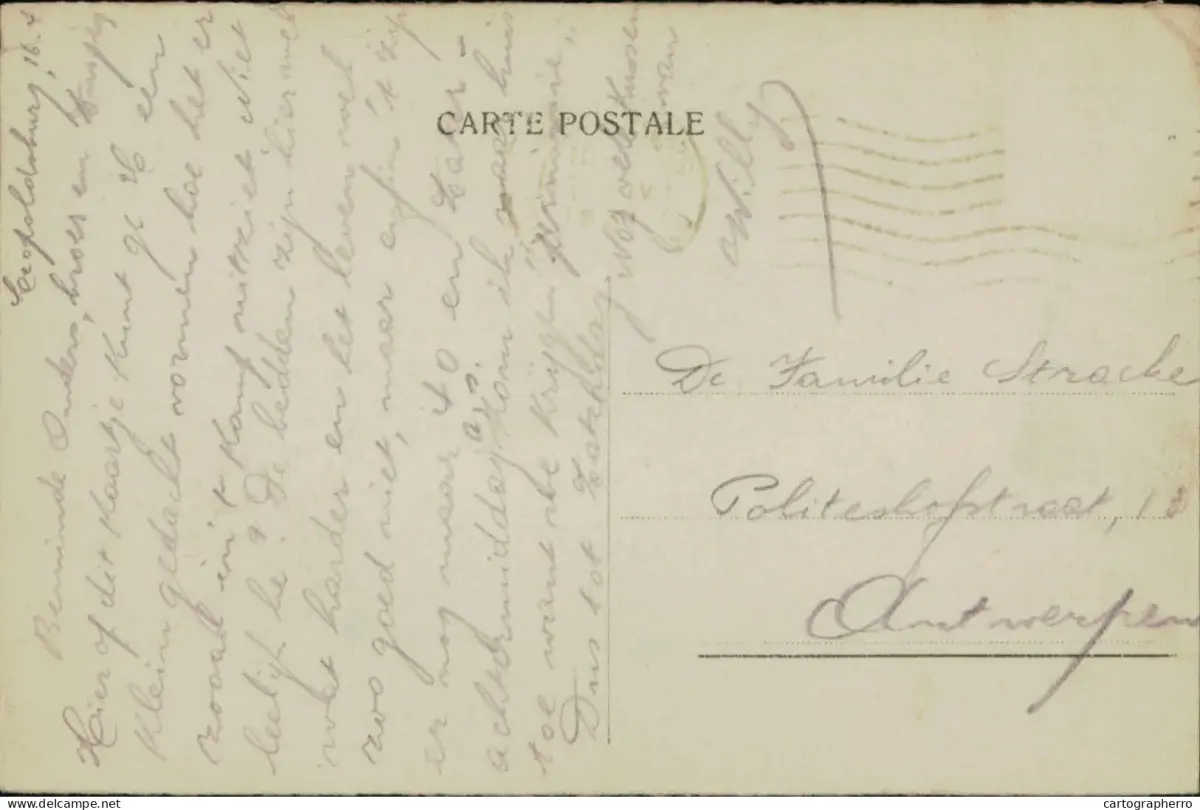 CARTE POSTALE
Leopoldsburg, 16.4
Beminde Ouders, broer en
Hier of dit Kaartje Kunt gt U een
Klein gedacht vormen hoe het er
zooal in't Kamp uitziet Niet
leelijk he? De bedden zijn hier wel
wat harder en het leven wel
zoo goed niet, maar enfin 't zijn
er nog maar 40 en Zater-
achternmiddag a.s. kom ik naar huis
toe want we Krijgen "permissie".
Dus tot Zaterdag
Nog veel Kussen
van
Willy
De Familie Stracke
Politeshofstraat, 1
Antwerpen
delcampe.net
cartographero